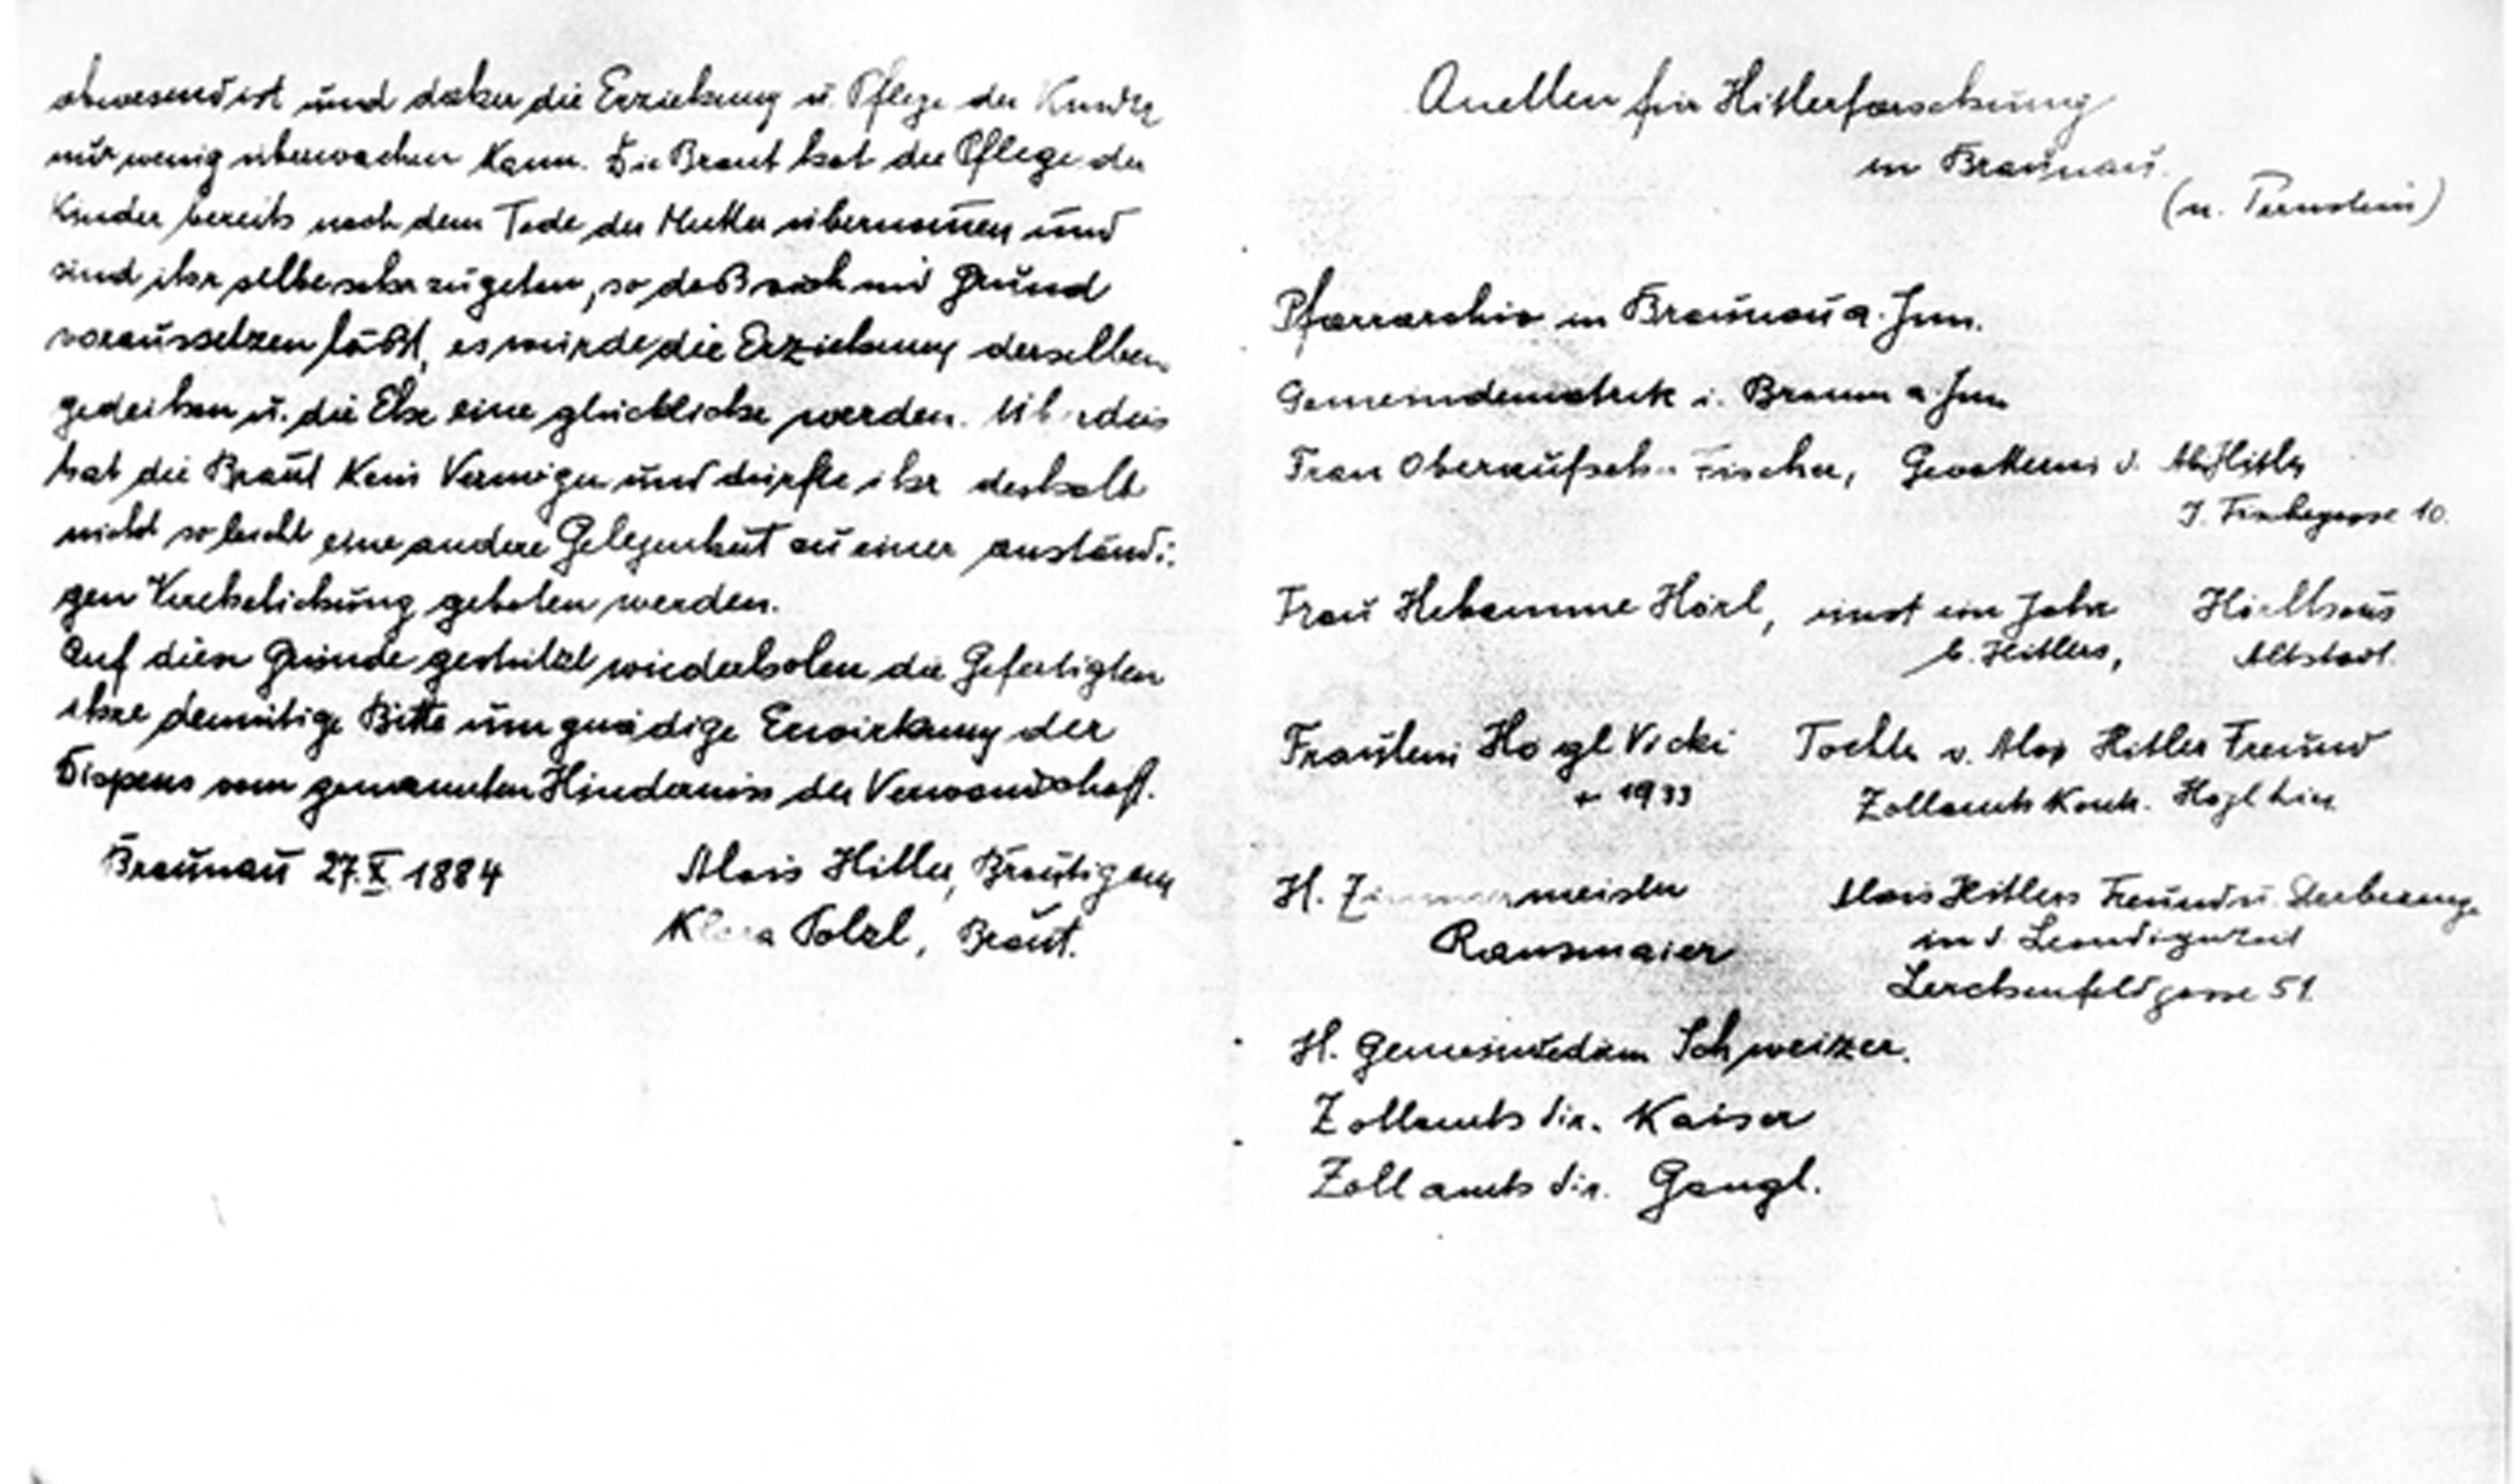 abwesend ist und daher die Erziehung u. Pflege der Kinder
nur wenig überwachen kann. Die Braut hat die Pflege der
Kinder bereits nach dem Tode der Mutter übernom̄en und
sind ihr selbe sehr zugetan, so daß sich mit Grund
voraussetzen läßt, es würde die Erziehung derselben
gedeihen u. die Ehe eine glückliche werden. Überdies
hat die Braut kein Vermögen und dürfte ihr deshalb
nicht so leicht eine andere Gelegenheit zu einer anständi-
gen Verehelichung geboten werden.
Auf diese Gründe gestützt wiederholen die Gefertigten
ihre demütige Bitte um gnädige Erwirkung der
Dispens vom genannten Hinderniss der Verwandschaft.
Braunau 27. X. 1884
Alois Hitler, Bräutigam
Klara Pölzl, Braut.
Quellen für Hitlerforschung
in Braunau.
(u. Pernstein)
Pfarrarchiv in Braunau a. Inn.
Gemeindematrik i. Braun a. Inn
Frau Fischer, Gevatterin v. Hitler
10.
Frau Hebamme Hörl, einst ein Jahr
b. Hitlers,
Altstadt.
Fräulein Högl Vicki
+ 1933
Tochter v. Alois Hitler Freund
H. Zimmermeister
Ransmaier
Alois Hitlers Freund u.
in d. Leondingerzeit
Lerchenfeldgasse 51.
H. Schweizer.
Zollamtsdir. Kaiser
Zollamtsdir. Gangl.